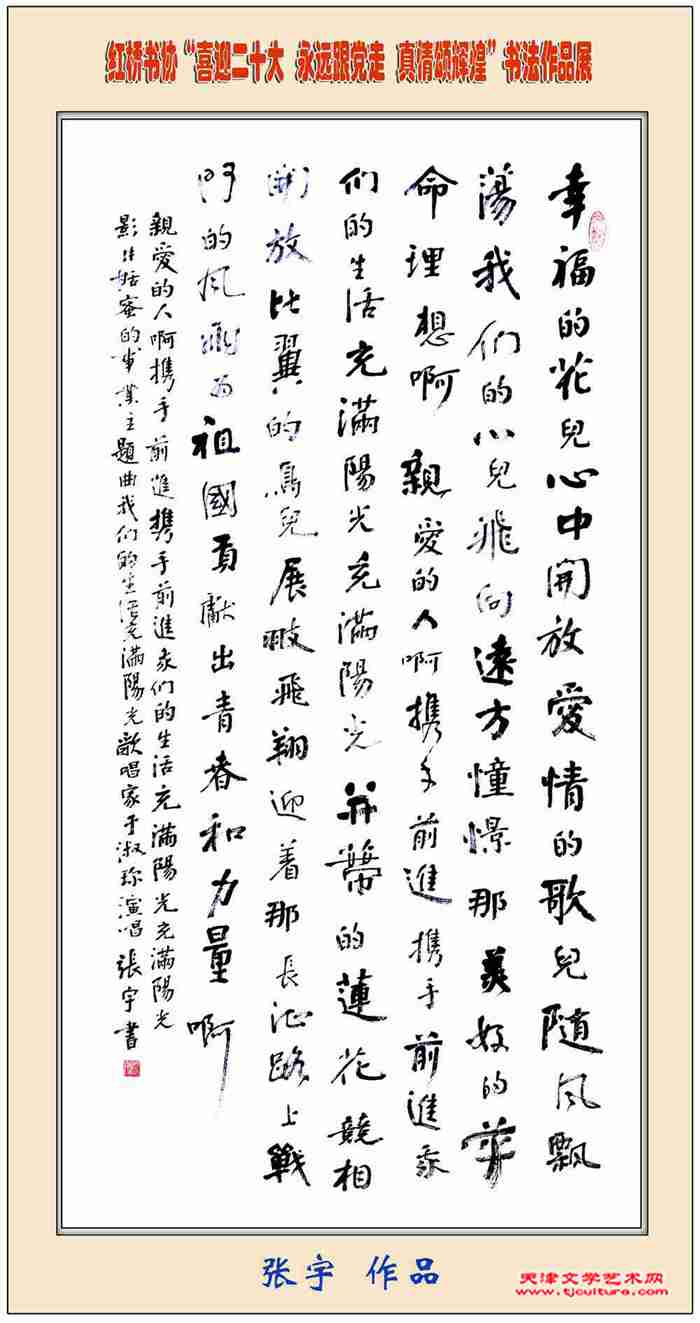 红桥书协“喜迎二十大 永远跟党走 真情颂辉煌”书法作品展
幸福的花兒心中開放愛情的歌兒隨风飄
蕩我们的心兒飛向遠方憧憬那美好的革
命理想啊親愛的人啊携手前進携手前進我
们的生活充滿陽光充滿陽光并蔕的蓮花競相
開放比翼的鳥兒展翅飛翔迎着那長征路上戰
鬥的风雨为祖國貢獻出青春和力量啊
親愛的人啊携手前進携手前進我们的生活充滿陽光充滿陽光
影片甜蜜的事業主題曲我们的生活充滿陽光歌唱家于淑珍演唱 張宇書
张宇 作品
天津文学艺术网
www.tjculture.com